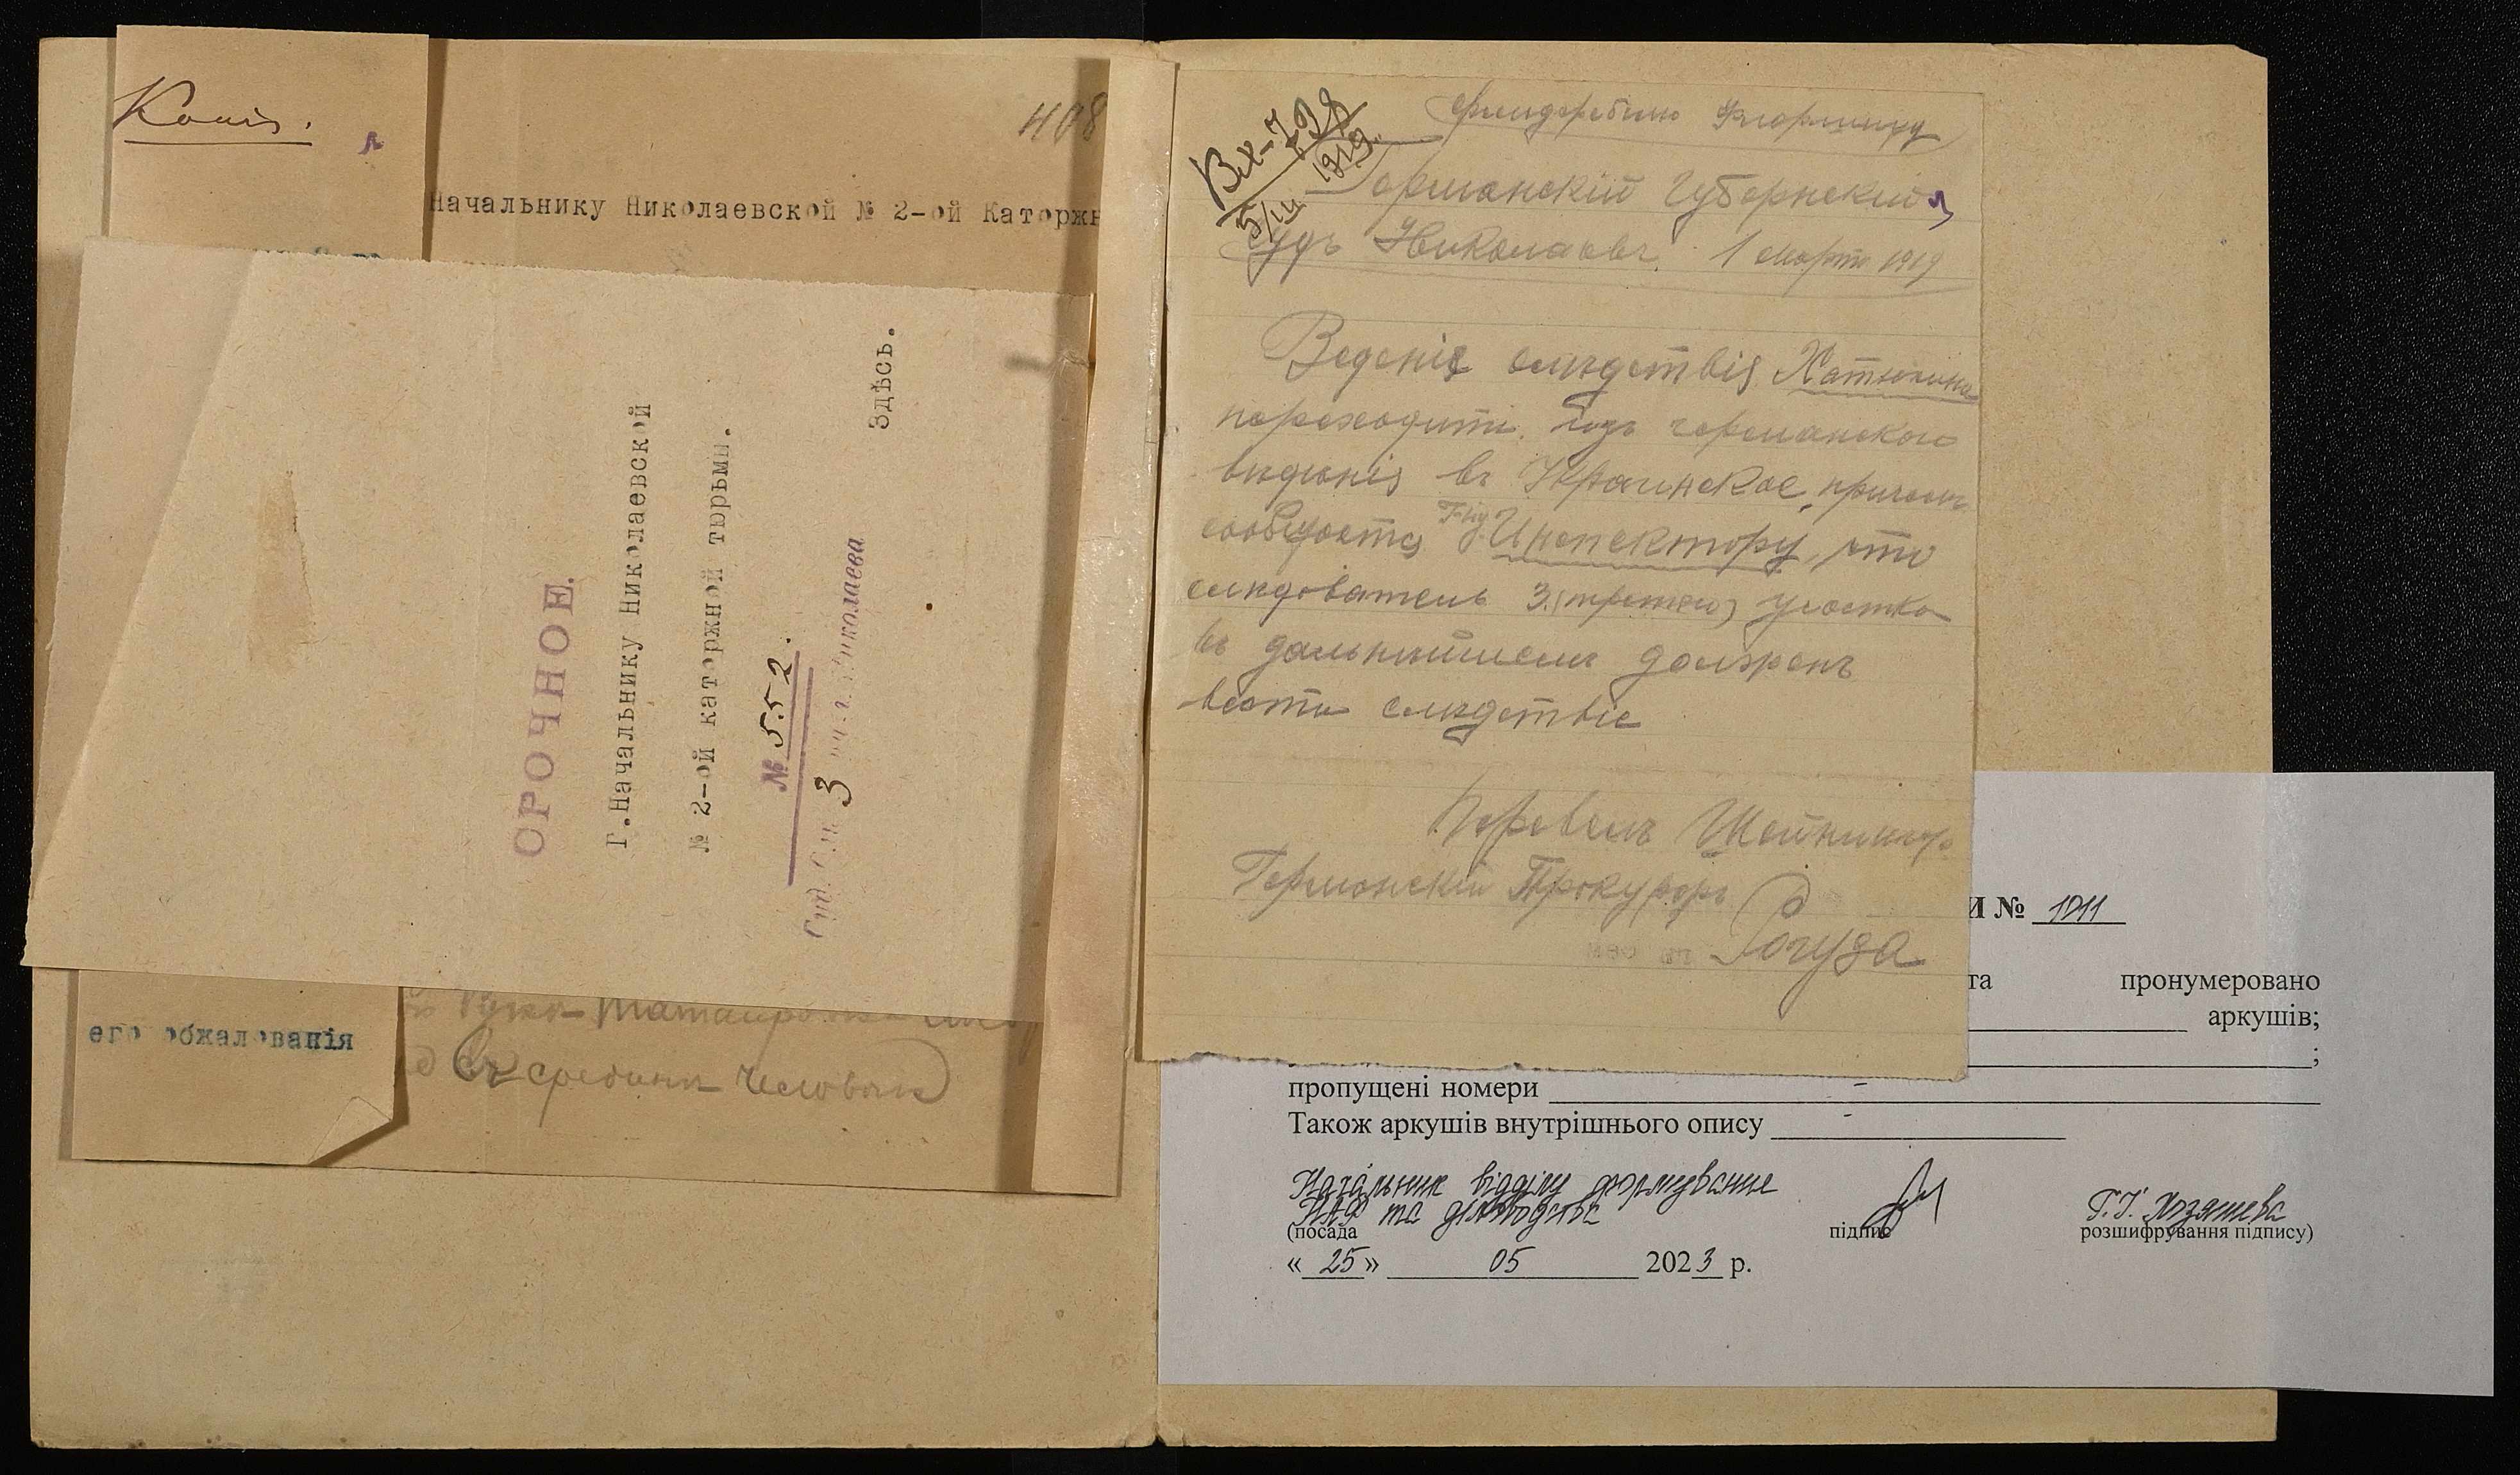 Копія.
408
Начальнику Николаевской № 2-ой Каторжн
СРОЧНОЕ.
Г.Начальнику Николаевской
№ 2-ой каторжной тюрьмы.
№ 552.
Суд. Сл. 3 уч. г. Николаева
Здѣсь.
его обжалованія
въ средини человѣка
Вх-7
1919
5/III
Германскій Губернскій
Судъ Николаевъ. 1 Марта 1919
Веденіе слѣдствія Хатюхина
переходитъ изъ германскаго
вѣдѣнія въ Украинское, причемъ
сообщается Инспектору, что
слѣдователь 3.(третяго) участка
въ дальнѣйшемъ долженъ
вести слѣдствіе
Перевелъ
Германскій Прокуроръ
Рогуза
И № 1011
та пронумеровано
аркушів;
;
пропущені номери -
Також аркушів внутрішнього опису -
Начальник відділу формування
НАФ та діловодства
(посада підпис розшифрування підпису)
Г.Г. Хозяшева
« 25 » 05 2023 р.